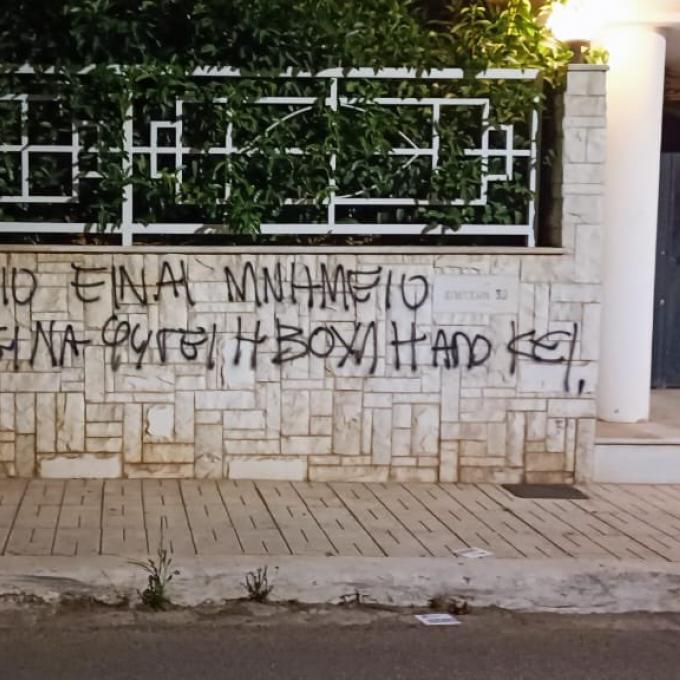 ΙΟ ΕΙΝΑΙ ΜΝΗΜΕΙΟ
ΕΙ ΝΑ ΦΥΓΕΙ Η ΒΟΥΛΗ ΑΠΟ ΚΕΙ,